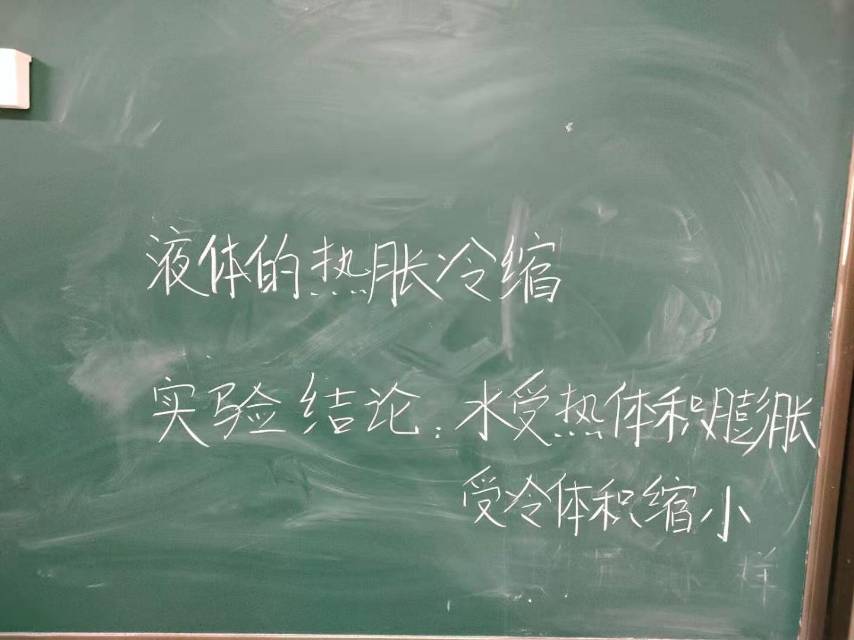 液体的热胀冷缩
实验结论:水受热体积膨胀
受冷体积缩小